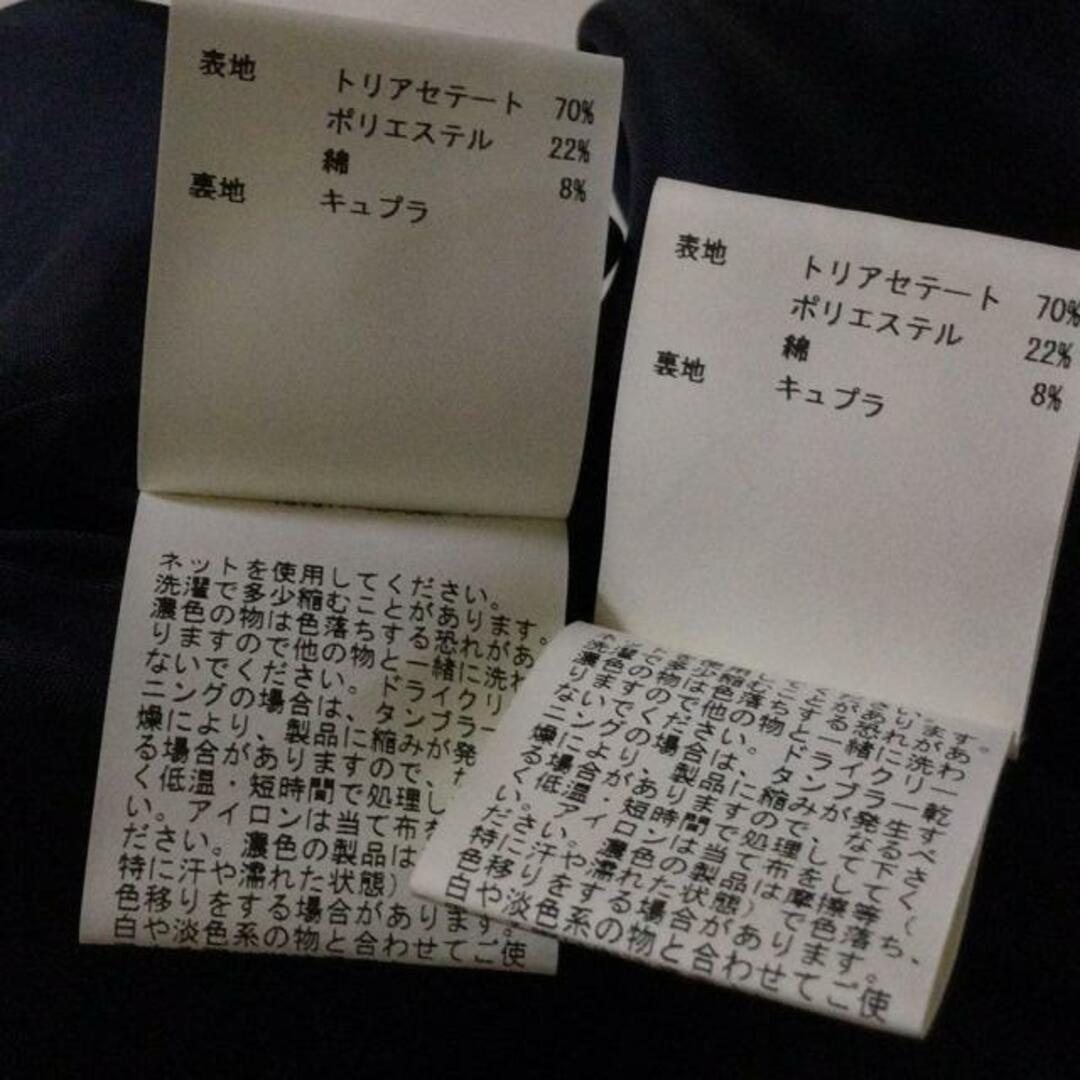 表地 トリアセテート 70%
ポリエステル 22%
綿 8%
裏地 キュプラ
ネットを使用してください。
洗濯で多少縮むことがあります。
濃色の物は色落ちする恐れがあ
りますので他の物と一緒に洗わ
ないでください。ドライクリ
ニングの場合は、タンブラー
燥により、製品に縮みが発
る場合がありますので、
く低温・短時間で処理し
い。アイロンは当て布
ださい。濃色の製品は
特に汗や濡れた状態)
色移りをする場合があります。
白や淡色系の物と合わせてご使
表地 トリアセテート 70%
ポリエステル 22%
綿 8%
裏地 キュプラ
濃色の物は色落ちする恐れがあ
りますので他の物と一緒に洗わ
ないでください。ドライクリー
ニングの場合は、タンブラー乾
燥により、製品に縮みが発生す
る場合がありますので、なるべ
く低温・短時間で処理して下さ
い。アイロンは当て布をしてく
ださい。濃色の製品は摩擦等(
特に汗や濡れた状態)で色落ち、
色移りをする場合があります。
白や淡色系の物と合わせてご使